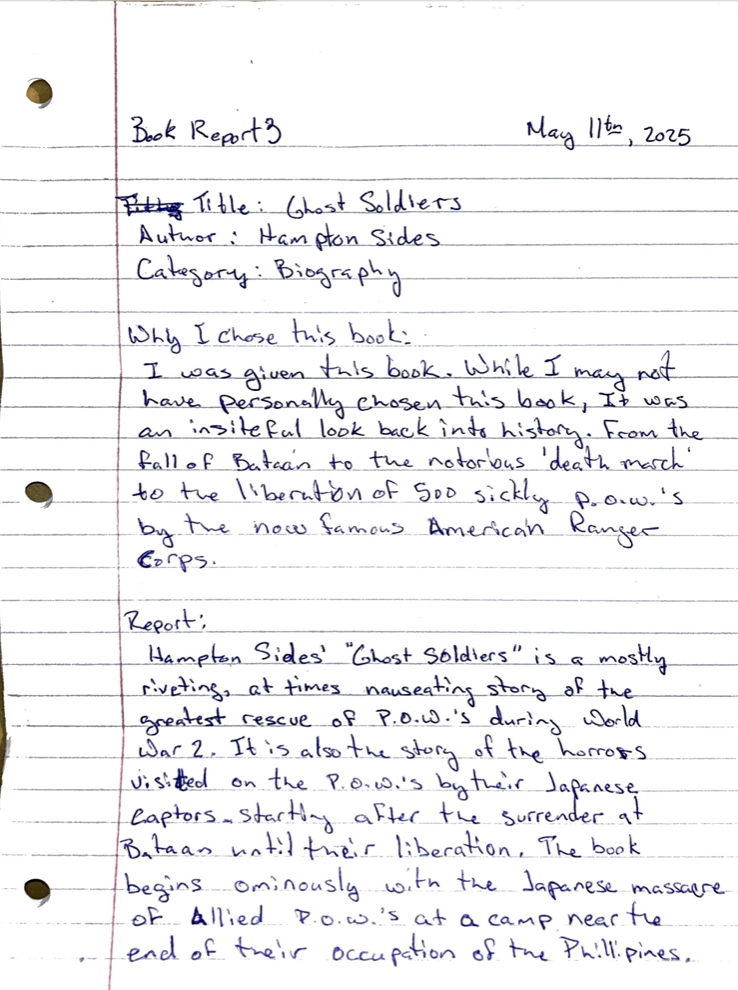 Book Report 3 May 11th, 2025
Title: Ghost Soldiers
Author: Hampton Sides
Category: Biography
Why I chose this book:
I was given this book. While I may not
have personally chosen this book, It was
an insiteful look back into history. From the
fall of Bataan to the notorious 'death march'
to the liberation of 500 sickly P.O.W.'s
by the now famous American Ranger
Corps.
Report:
Hampton Sides' "Ghost Soldiers" is a mostly
riveting, at times nauseating story of the
greatest rescue of P.O.W.'s during World
War 2. It is also the story of the horrors
visited on the P.O.W.'s by their Japanese
Captors. starting after the surrender at
Bataan until their liberation. The book
begins ominously with the Japanese massacre
of Allied P.O.W.'s at a camp near the
end of their occupation of the Phillipines.